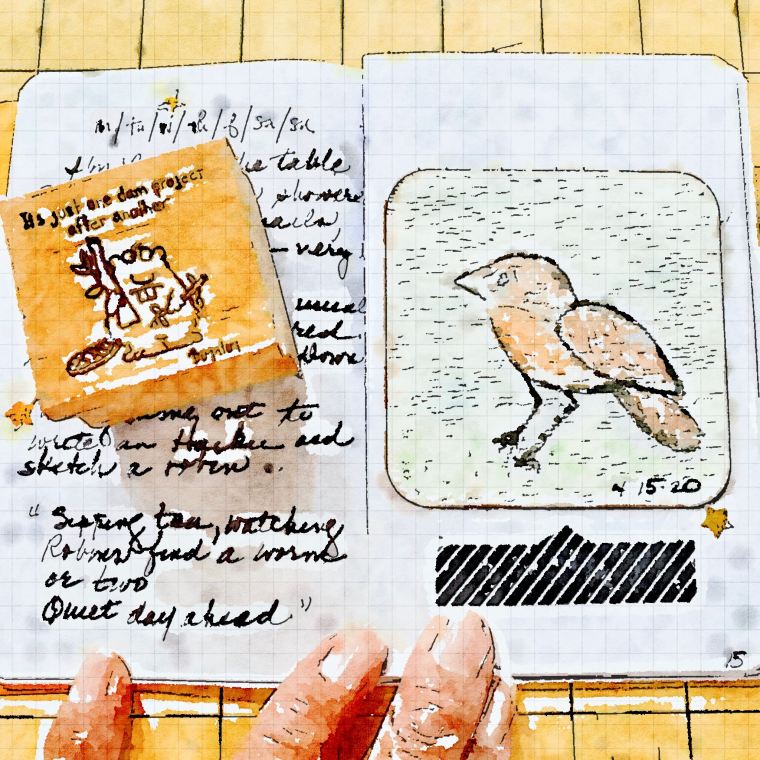 m/tu/w/th/f/sa/su
the table
showers
— very
usual
red.
Down
It's just one dam project
after another
out to
write an Haiku and
sketch a robin ..
"Sipping tea, watching
Robins find a worm
or two
Quiet day ahead"
4 15 20
15